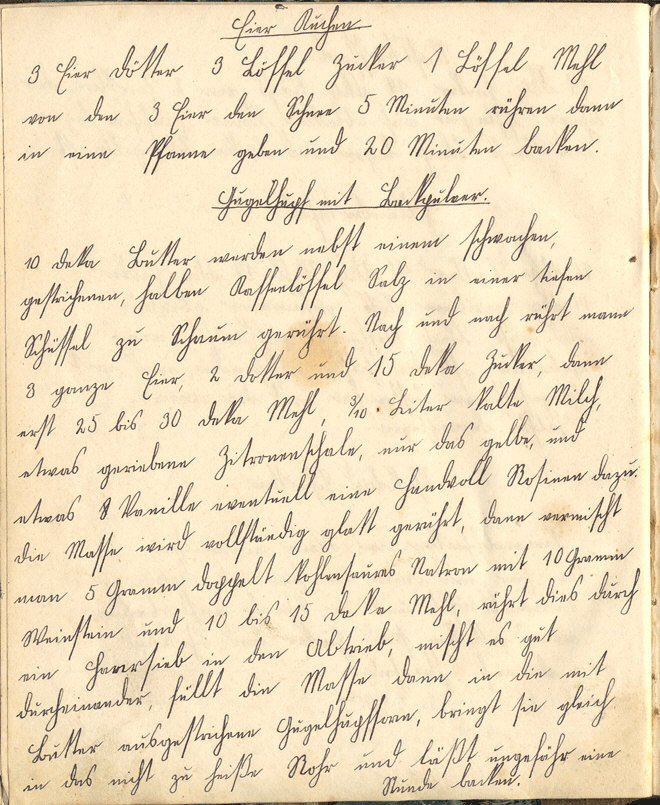 Eier Kuchen
3 Eier Dötter 3 Löffel Zucker 1 Löffel Mehl
von den 3 Eier den Schnee 5 Minuten rühren dann
in eine Pfanne geben und 20 Minuten backen.
Gugelhupf mit Backpulver.
10 deka Butter werden nebst einem schwachen,
gestrichenen, halben Kaffeelöffel Salz in einer tiefen
Schüssel zu Schaum gerührt. Nach und nach rührt mann
3 ganze Eier, 2 dotter und 15 deka Zucker, dann
erst 25 bis 30 deka Mehl, 3/10 Liter kalte Milch,
etwas geriebene Zitronenschale, nur das gelbe, und
etwas Vanille eventuell eine Handvoll Rosinen dazu.
die Masse wird vollständig glatt gerührt, dann vermischt
man 5 Gramm doppelt kohlensaures Natron mit 10 Gramm
Weinstein und 10 bis 15 deka Mehl, rührt dies durch
ein Haarsieb in den Abtrieb, mischt es gut
durcheinander, füllt die Masse dann in die mit
Butter ausgestrichene Gugelhupfform, bringt sie gleich
in das nicht zu heiße Rohr und läßt ungefähr eine
Stunde backen.